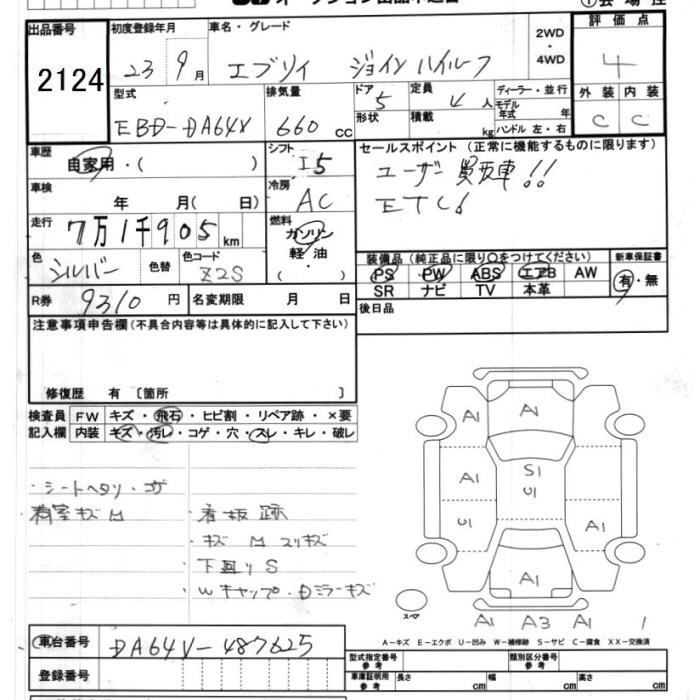 出品番号
2124
初度登録年月
23 9月
車名・グレード
エブリイ ジョインハイルーフ
2WD
・
4WD
評価点
4
外装 内装
C C
型式
EBD-DA64V
排気量
660 cc
ドア
5
形状
定員
4 人
積載
kg
ディーラー・並行
モデル年式 年
ハンドル 左・右
車歴
自家用・( )
シフト
I5
車検
年 月( 日)
冷房
AC
走行
7万1千905km
燃料
ガソリン
軽油
( )
色
シルバー
色替
色コード
Z2S
R券
9310円
名変期限 月 日
セールスポイント (正常に機能するものに限ります)
ユーザー買取車!!
ETC
装備品 (純正品に限り○をつけてください)
PS PW ABS エアB AW
SR ナビ TV 本革
新車保証書
有・無
後日品
注意事項申告欄(不具合内容等は具体的に記入して下さい)
修復歴 有 〔箇所 〕
検査員記入欄
FW キズ・飛石・ヒビ割・リペア跡・×要
内装 キズ・汚レ・コゲ・穴・スレ・キレ・破レ
・シートヘタリ・コゲ
荷室キズM
・看板跡
・キズMスリキズ
・下回りS
・Wキャップ・Dミラーキズ
A1 A1
A1 S1
U1
U1 A1
A1
スペア
A1 A3 1
A-キズ E-エクボ U-凹み W-補修跡 S-サビ C-腐食 XX-交換済
車台番号
DA64V-487625
登録番号
型式指定番号
参考
類別区分番号
参考
車庫証明用
参考
長さ cm 幅 cm 高さ cm